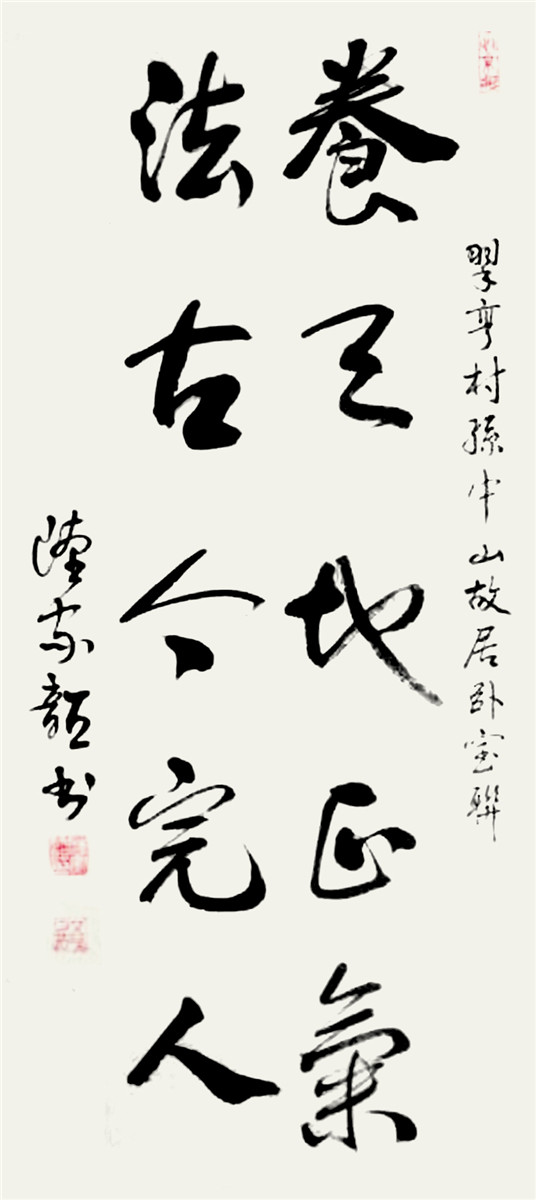 翠亨村孫中山故居卧室聯
養天地正氣
法古今完人
陸家書